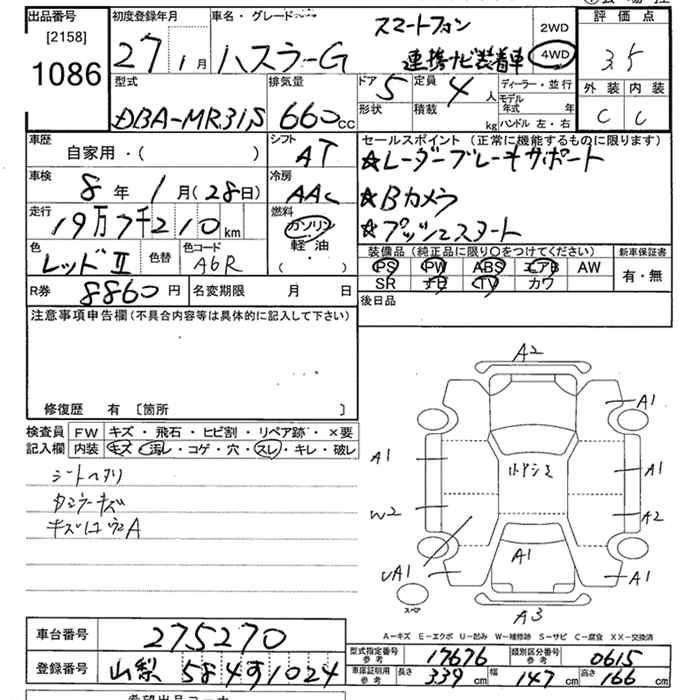 出品番号
[2158]
1086
初度登録年月
27年1月
車名・グレード
ハスラーG
スマートフォン
連携ナビ装着車
2WD
4WD
評価点
3.5
外装 内装
C C
型式
DBA-MR31S
排気量
660cc
ドア 5
形状
定員 4人
積載 kg
ディーラー・並行
モデル年式 年
ハンドル 左・右
車歴
自家用・( )
シフト
AT
車検
8年1月(28日)
冷房
AAC
走行
19万7千210km
燃料
ガソリン
軽油
( ・ )
色
レッドⅡ
色替
色コード
A6R
R券 8860円
名変期限 月 日
セールスポイント(正常に機能するものに限ります)
☆レーダーブレーキサポート
☆Bカメラ
☆プッシュスタート
装備品(純正品に限り○をつけてください)
PS PW ABS エアB AW
SR ナビ TV カワ
新車保証書
有・無
後日品
注意事項申告欄(不具合内容等は具体的に記入して下さい)
修復歴 有 〔箇所 〕
検査員記入欄
FW キズ・飛石・ヒビ割・リペア跡・×要
内装 キズ・汚レ・コゲ・穴・スレ・キレ・破レ
シートヘタリ
A2
A1
A1
A1
W2
A2
A1
UA1
A1
A3
スペア
A－キズ E－エクボ U－凹み W－補修跡 S－サビ C－腐食 XX－交換済
車台番号
275270
登録番号
山梨 584す1024
型式指定番号 参考
17676
類別区分番号 参考
0615
車庫証明用 参考
長さ 339cm 幅 147cm 高さ 166cm